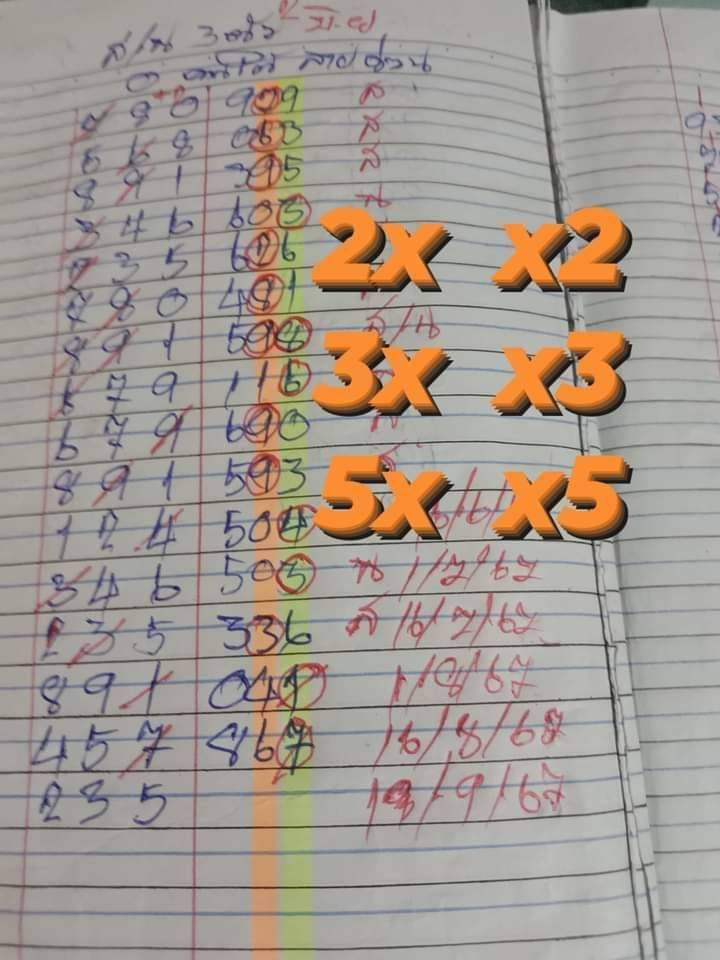 ส/น 3 ตัว
909
8 6 8 063
8 9 1 395
3 4 6 603
2 3 5 626
2x x2
7 8 0 481
8 9 1 598 ส/น
3x x3
6 7 9 116
6 7 9 690
8 9 1 593
5x x5
1 2 4 504
3 4 6 503 น 1/7/67
2 3 5 336 ส 16/7/67
8 9 1 041 1/8/67
4 5 7 867 16/8/67
2 3 5 1/9/67